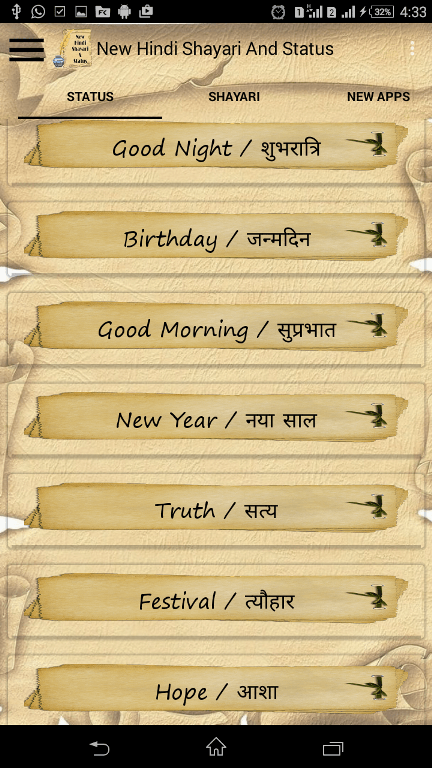 32% 4:33
New Hindi Shayari And Status
STATUS SHAYARI NEW APPS
Good Night / शुभरात्रि
Birthday / जन्मदिन
Good Morning / सुप्रभात
New Year / नया साल
Truth / सत्य
Festival / त्यौहार
Hope / आशा